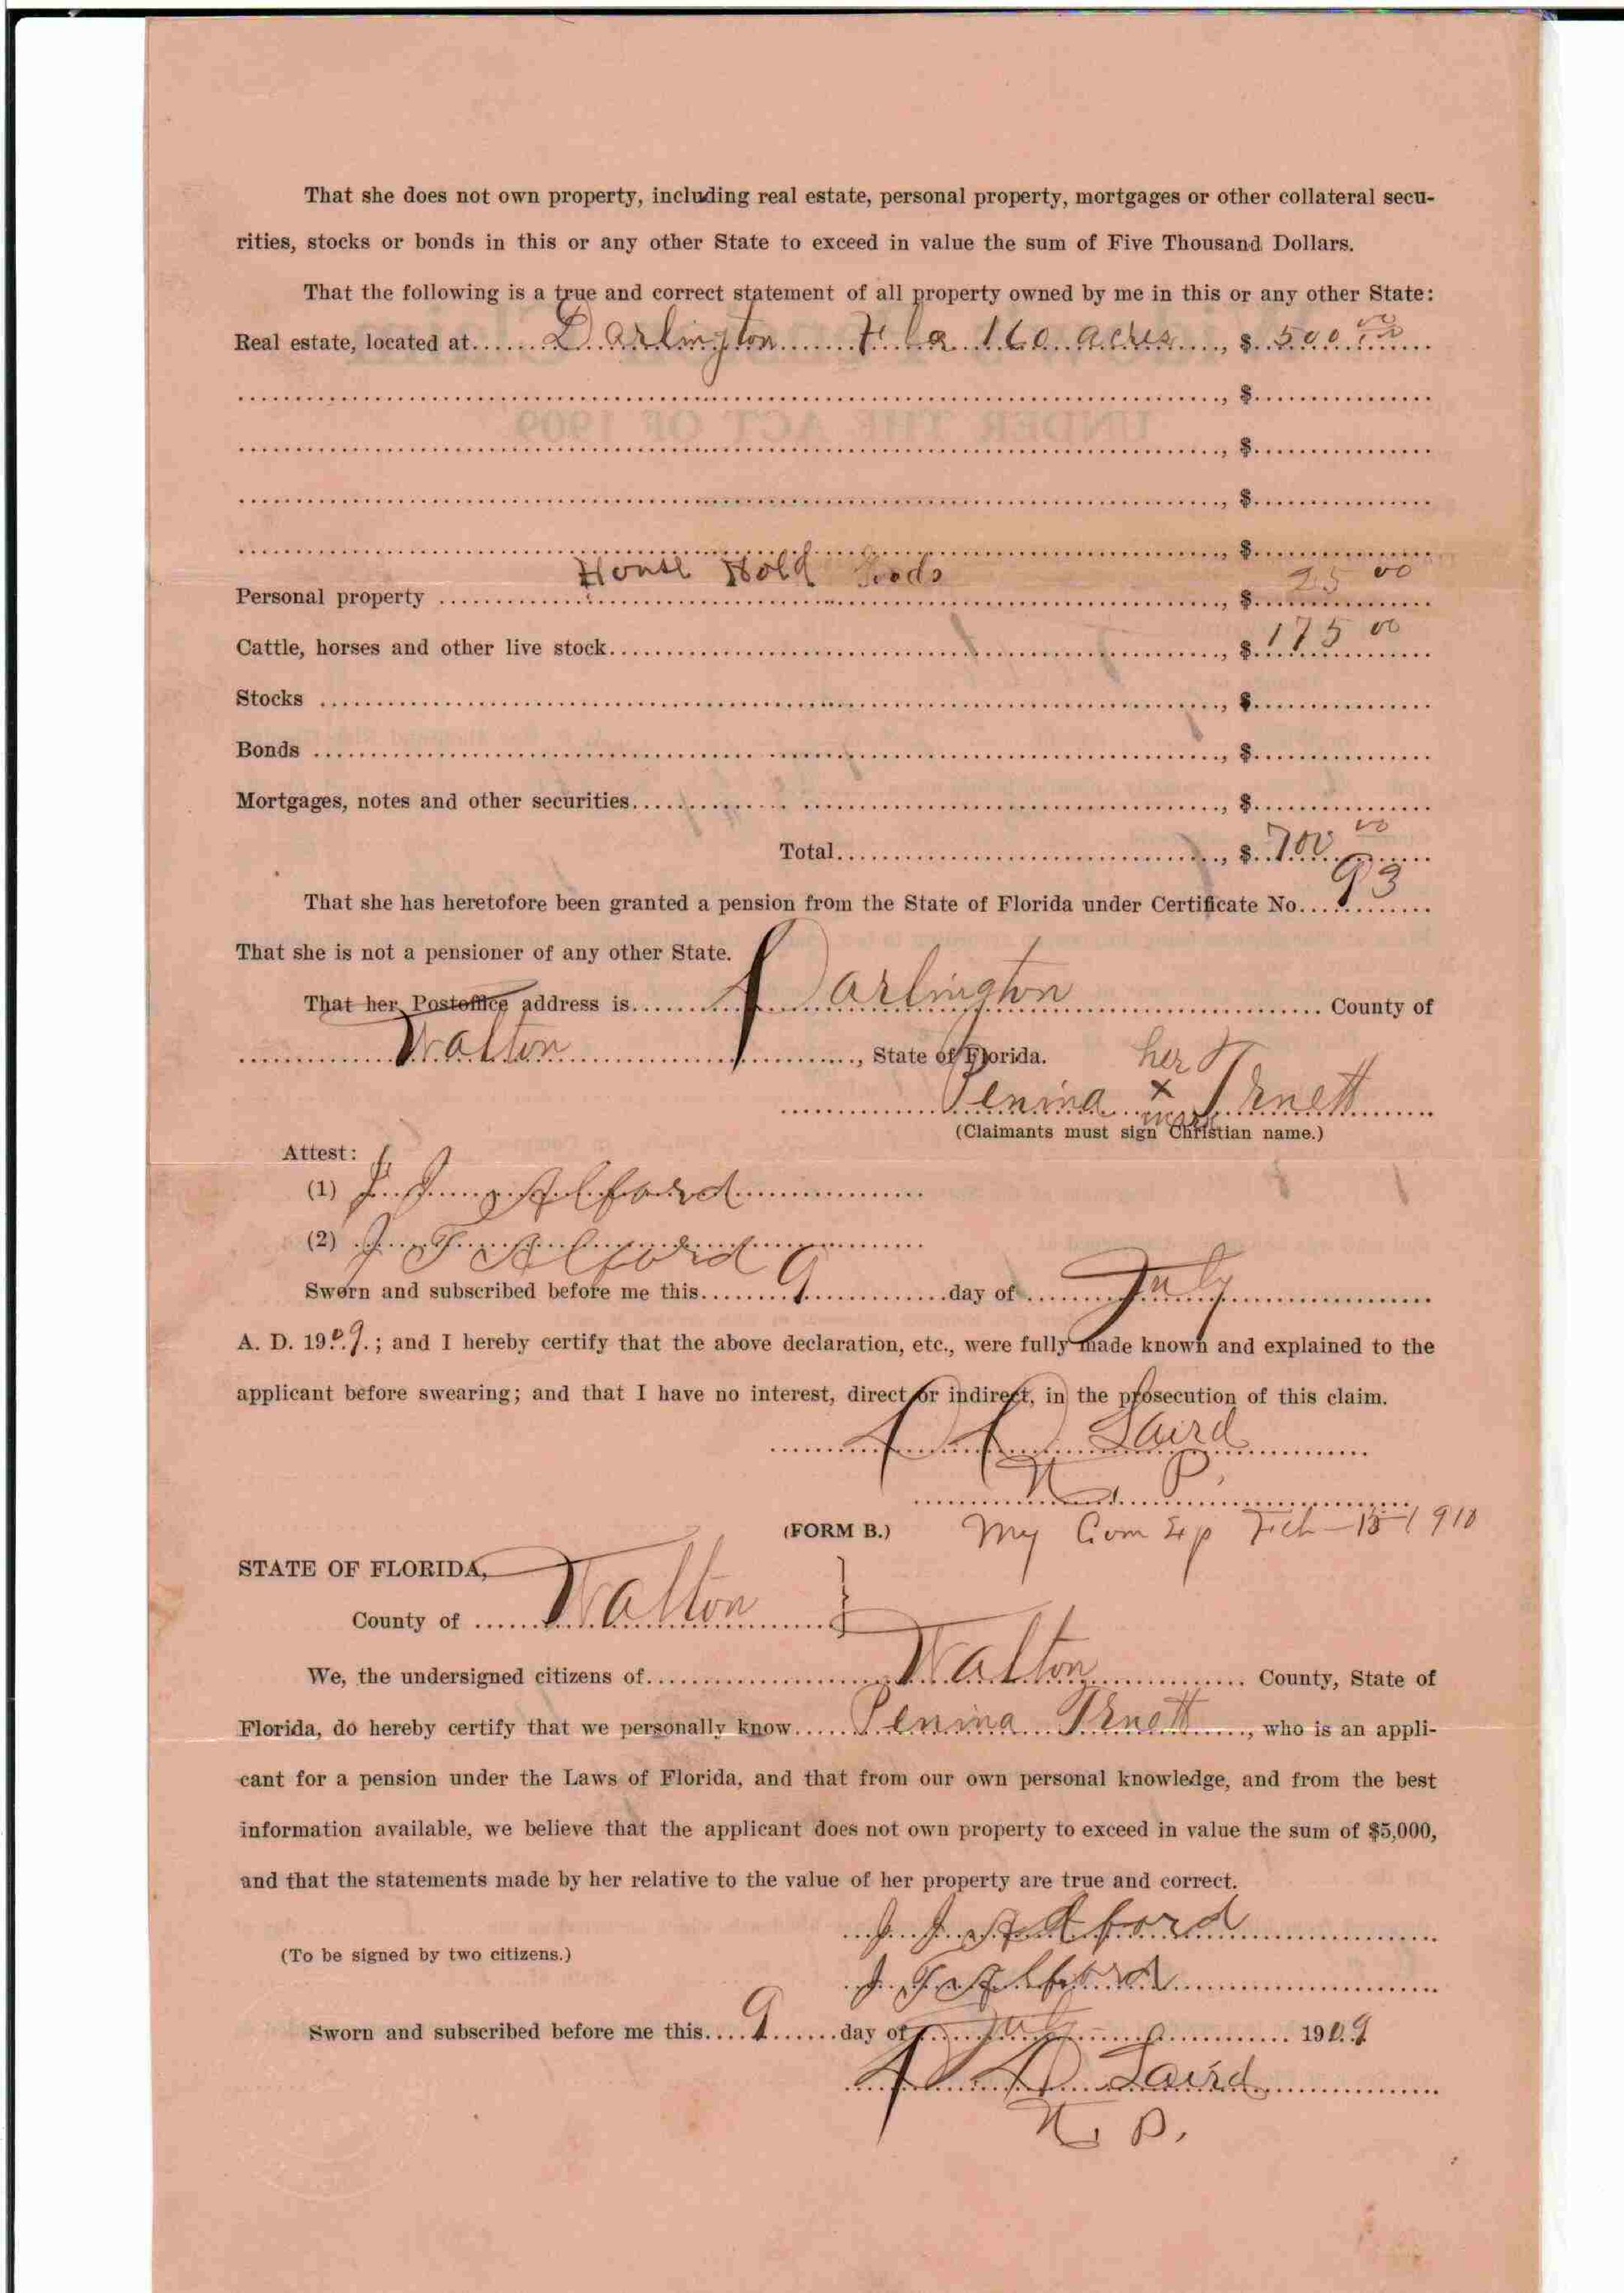 That she does not own property, including real estate, personal property, mortgages or other collateral secu-
rities, stocks or bonds in this or any other State to exceed in value the sum of Five Thousand Dollars.
That the following is a true and correct statement of all property owned by me in this or any other State:
Real estate, located at Darlington Fla 160 acres, $ 500.00
UNDER THE ACT OF 1909
, $
, $
, $
, $
House Hold Goods
Personal property, $ 25 00
Cattle, horses and other live stock, $ 175 00
Stocks, $
Bonds, $
Mortgages, notes and other securities, $
Total, $ 700 00
That she has heretofore been granted a pension from the State of Florida under Certificate No. 93
That she is not a pensioner of any other State.
That her Postoffice address is Darlington County of
Walton, State of Florida.
her
Penina x
mark
(Claimants must sign Christian name.)
Attest:
(1) J. J. Alford
(2) J T Alford
Sworn and subscribed before me this 9 day of July
A. D. 1909; and I hereby certify that the above declaration, etc., were fully made known and explained to the
applicant before swearing; and that I have no interest, direct or indirect, in the prosecution of this claim.
Laird
N. P.
(FORM B.) My Com Exp Feb - 15 - 1910
STATE OF FLORIDA,
County of Walton }
We, the undersigned citizens of Walton County, State of
Florida, do hereby certify that we personally know Penina, who is an appli-
cant for a pension under the Laws of Florida, and that from our own personal knowledge, and from the best
information available, we believe that the applicant does not own property to exceed in value the sum of $5,000,
and that the statements made by her relative to the value of her property are true and correct.
J. J. Alford
(To be signed by two citizens.)
J. T. Alford
Sworn and subscribed before me this 9 day of July 1909
Laird
N. P.